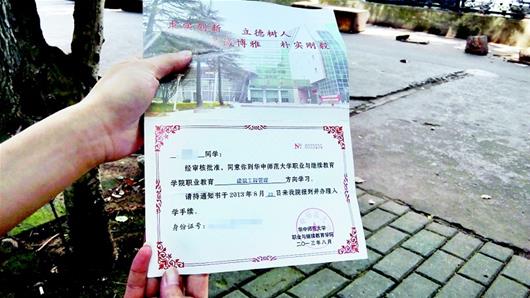 求实创新 立德树人
诚博雅 朴实刚毅
同学：
经审核批准，同意你到华中师范大学职业与继续教育
学院职业教育 建筑工程管理 方向学习。
请持通知书于 2013 年 8 月 日来我院报到并办理入
学手续。
身份证号：
华中师范大学
职业与继续教育学院
二〇一三年八月